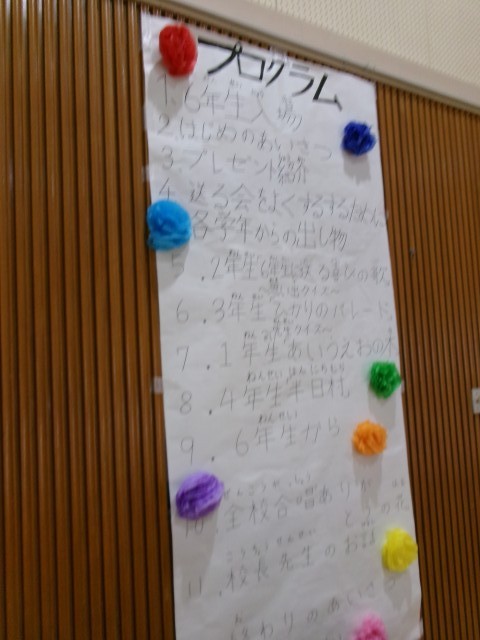 プログラム
1. 6年生入場
2. はじめのあいさつ
3. プレゼント紹介
4. 送る会をよくするために
各学年からの出し物
5. 2年生 6年生に送る喜びの歌
〜思い出クイズ〜
6. 3年生 ひかりのパレード
〜先生クイズ〜
7. 1年生 あいうえおの木
8. 4年生 半日村
9. 6年生から
10 全校合唱 ありがとうの花
11. 校長先生のお話
おわりのあいさつ